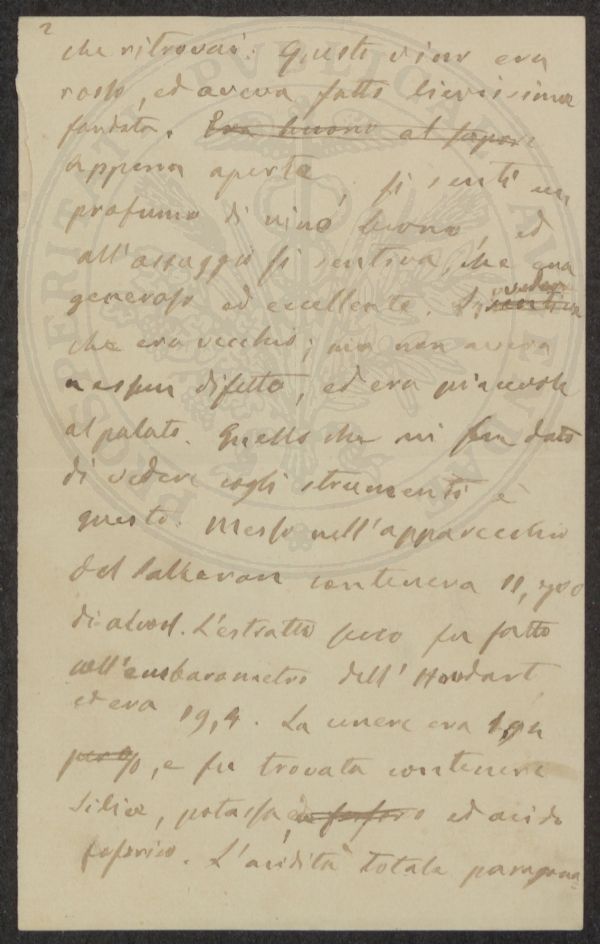 2
che ritrovai. Questo vino era
rosso, ed aveva fatto lievissima
fondata. Era buono al sapore
appena aperta, si sentì un
profumo di vino buono, ed
all'assaggio si sentiva, che era
generoso ed eccellente. Si vedeva
che era vecchio; ma non aveva
nessun difetto, ed era piacevole
al palato. Quello che mi fu dato
di vedere cogli strumenti è
questo. Messo nell'apparecchio
del Salleron conteneva 11,
di alcool. L'estratto secco fu fatto
coll'enobarometro dell'Houdart
ed era 19,4. La cenere era
e fu trovata contenere
Silice, potassa, ed acido
fosforico. L'acidità totale parago
PROSPERITATI PVBLICAE AVGENDAE